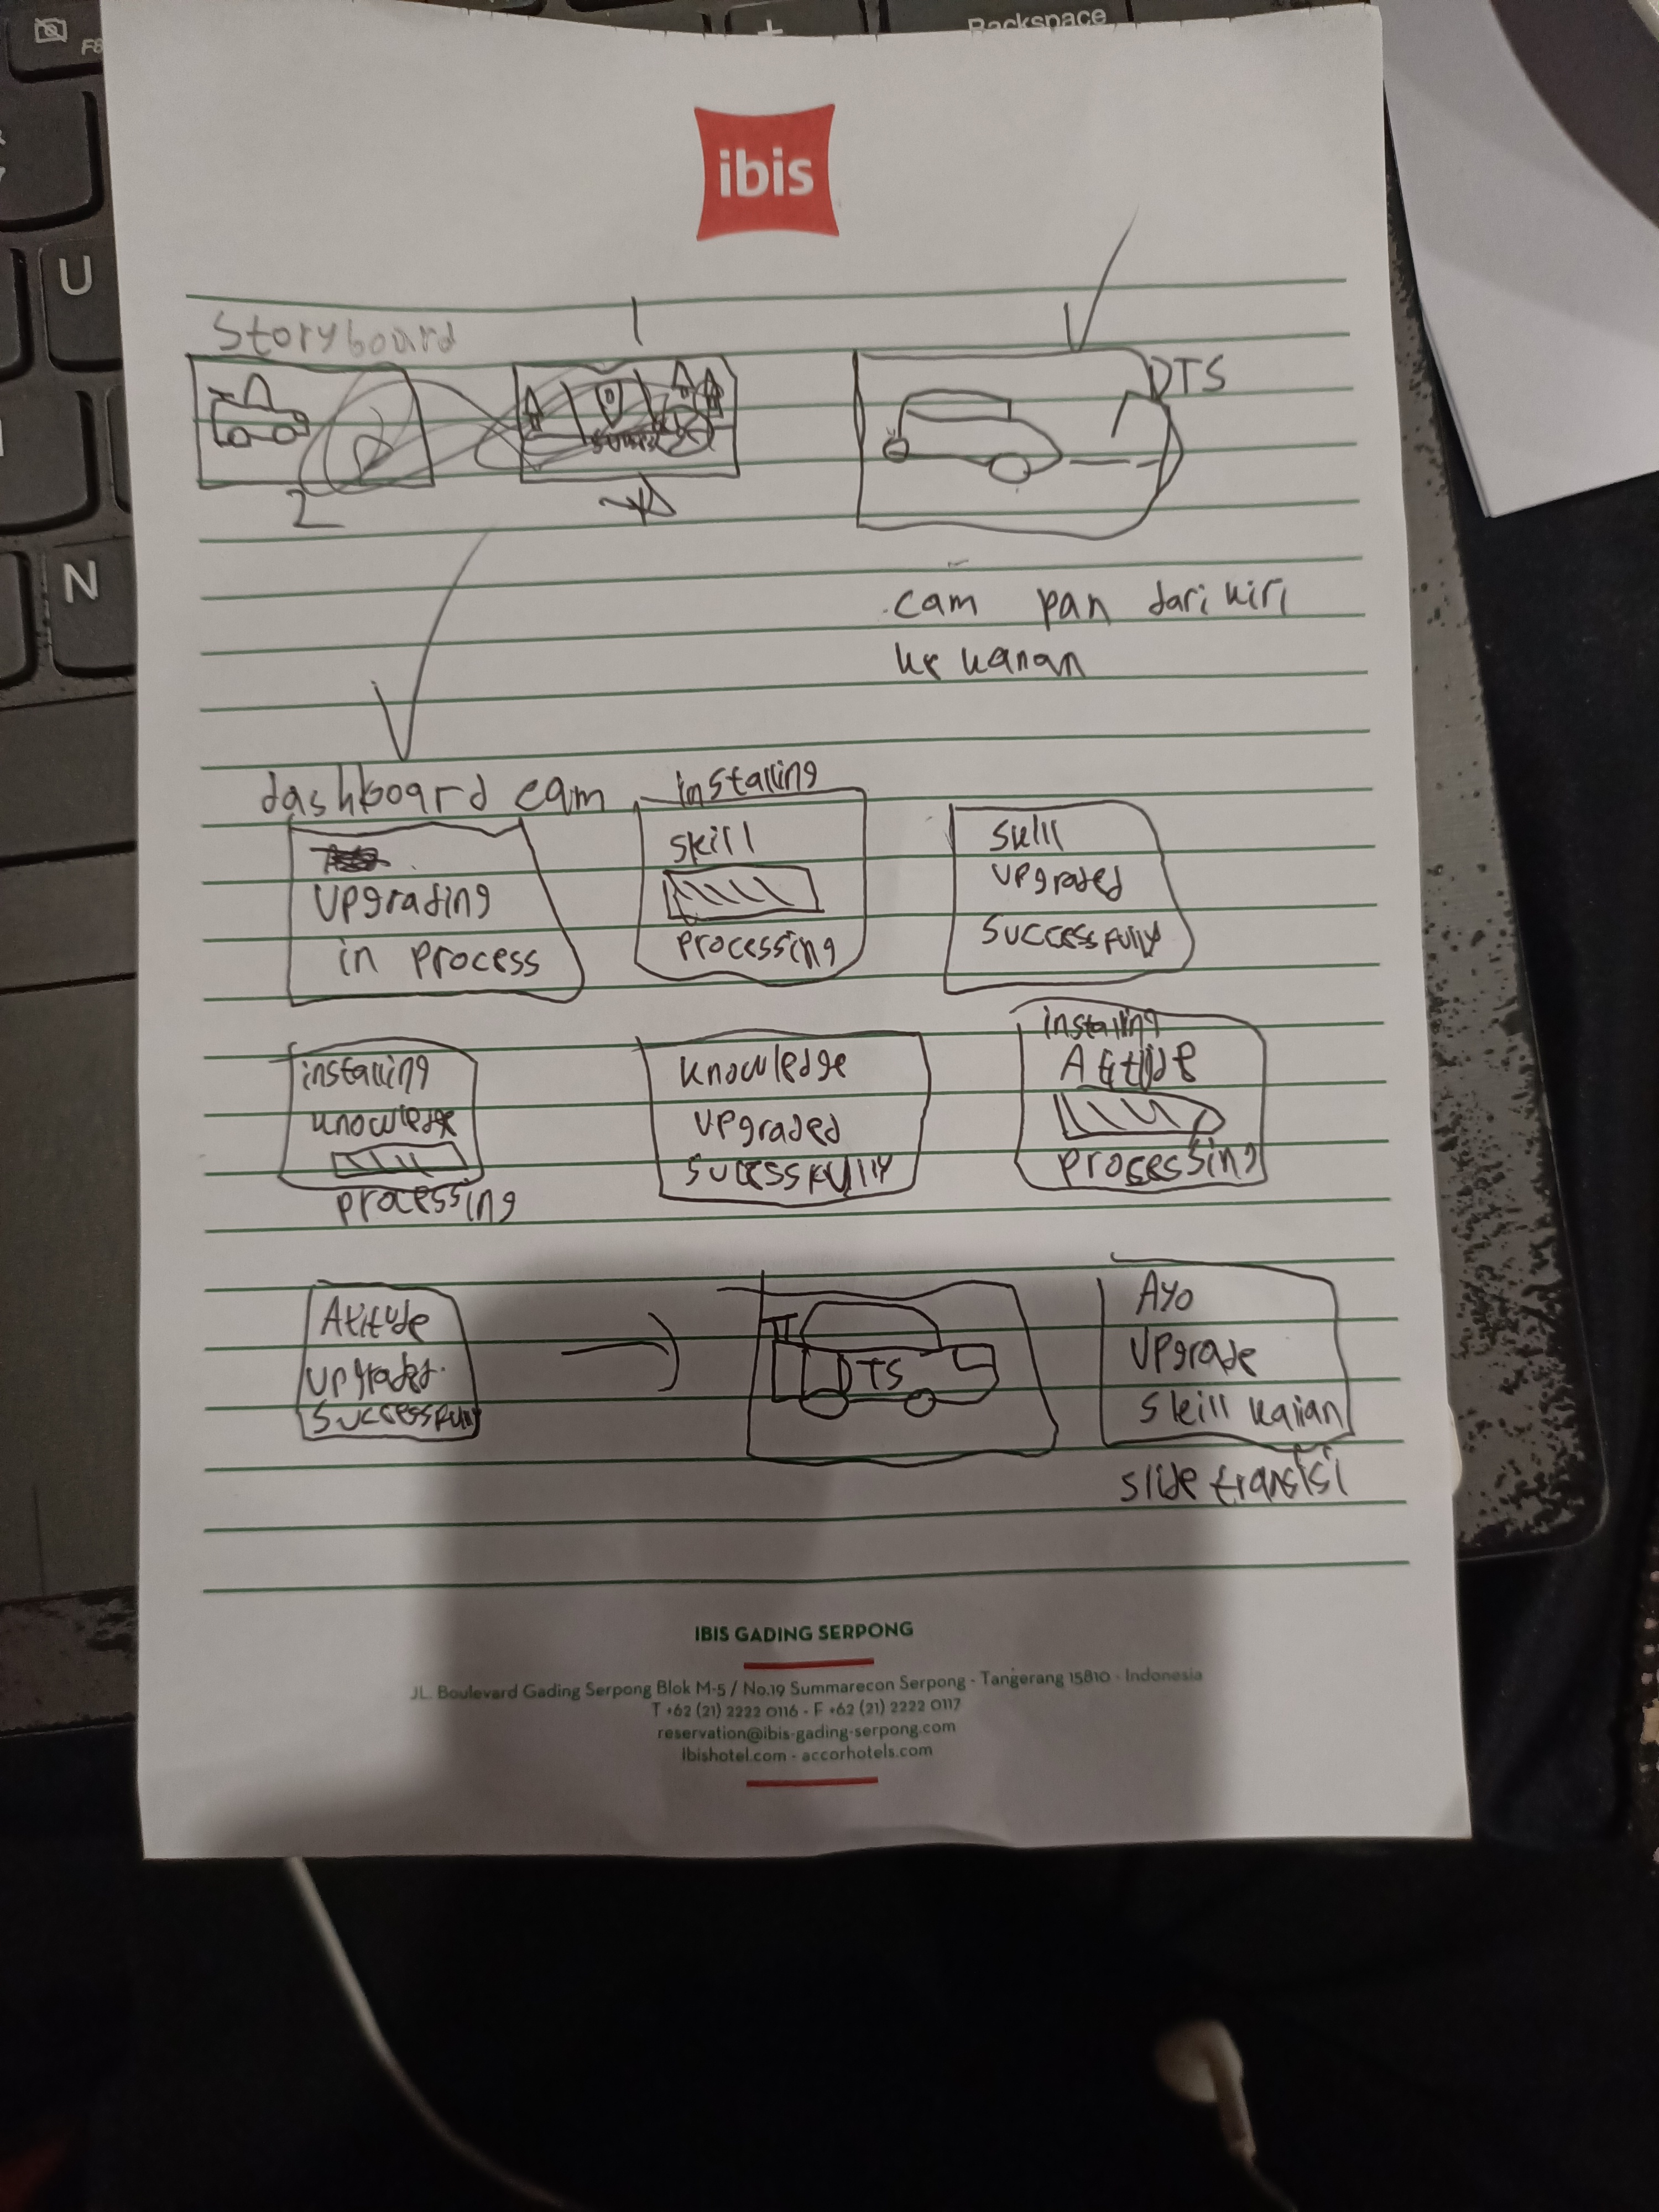 F8
+
Backspace
U
N
ibis
Storyboard
1
2
DTS
cam pan dari kiri
ke kanan
dashboard cam
Upgrading
in process
installing
skill
processing
skill
upgraded
successfully
installing
knowledge
processing
knowledge
upgraded
successfully
installing
Attitude
processing
Atitude
upgraded
successfully
DTS
Ayo
upgrade
skill kalian
slide transisi
IBIS GADING SERPONG
JL. Boulevard Gading Serpong Blok M-5 / No.19 Summarecon Serpong - Tangerang 15810 - Indonesia
T +62 (21) 2222 0116 - F +62 (21) 2222 0117
reservation@ibis-gading-serpong.com
Ibishotel.com - accorhotels.com